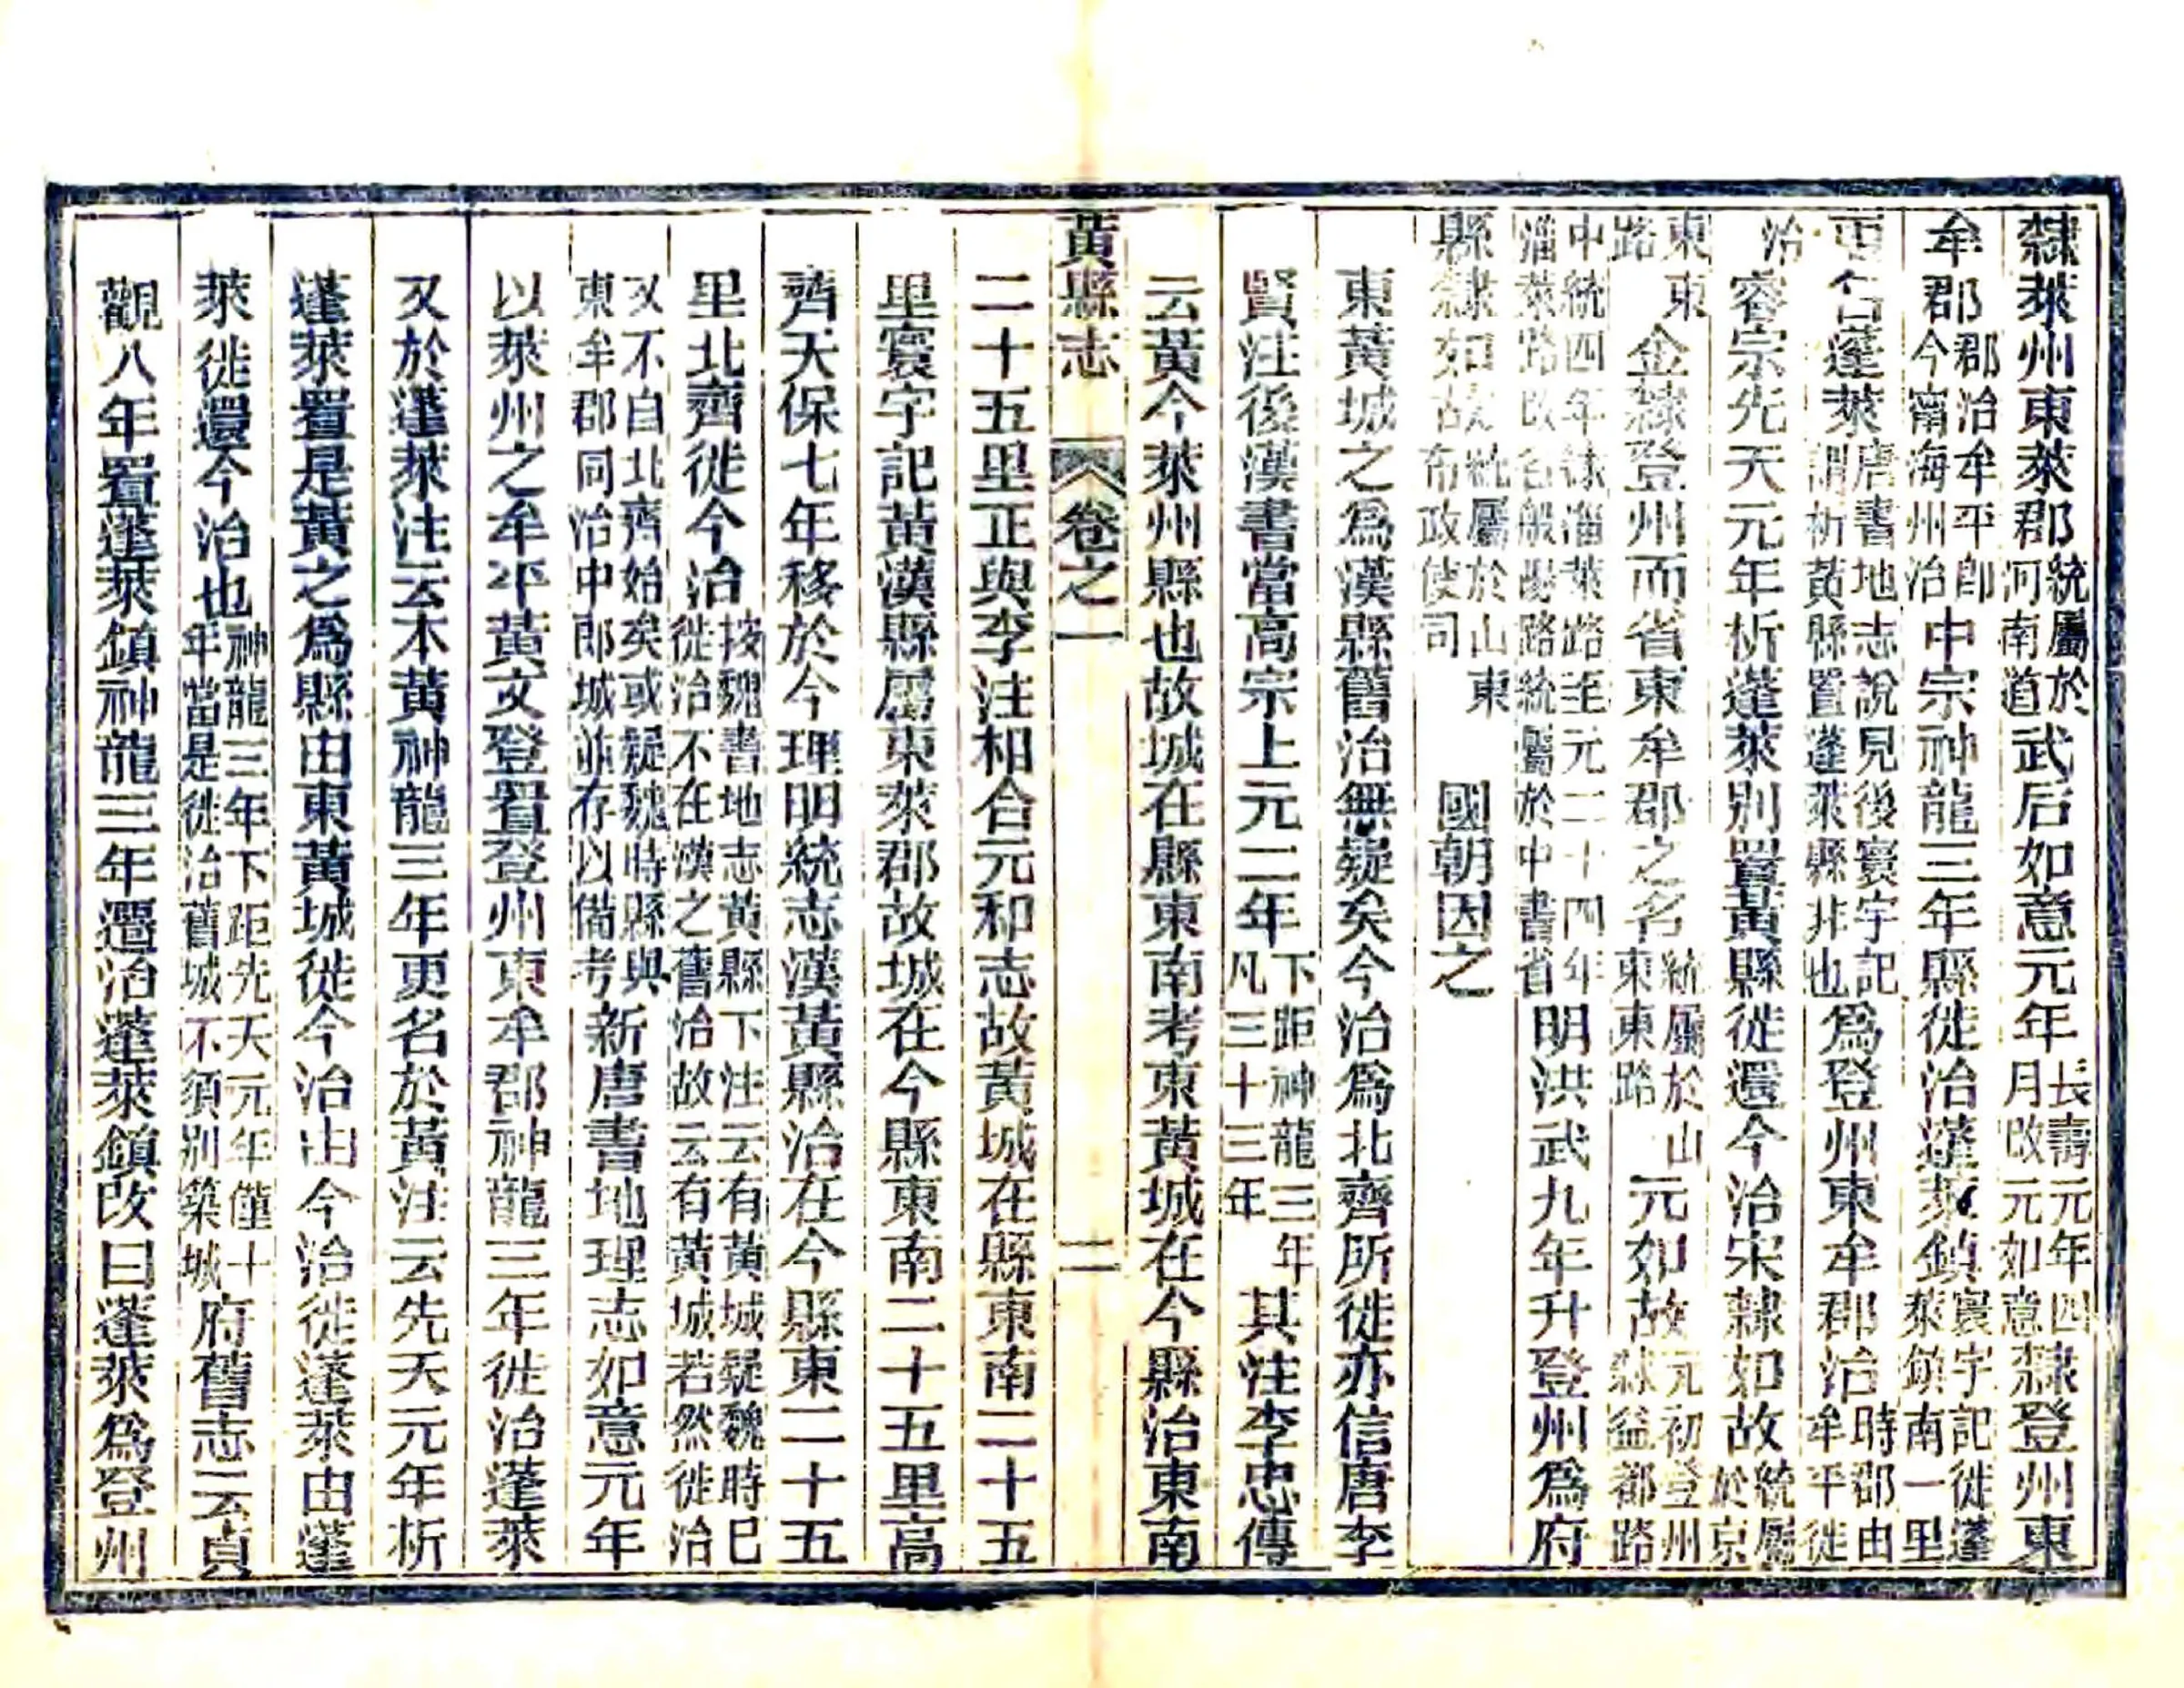 隸萊州東萊郡統屬於河南道武后如意元年長壽元年四月改元如意隸登州東
牟郡郡治牟平卽今甯海州治中宗神龍三年縣徙治蓬萊鎮寰宇記徙蓬萊鎮南一里
更名蓬萊唐書地志說見後寰宇記謂析黃縣置蓬萊縣非也爲登州東牟郡治時郡由牟平徙
治睿宗先天元年析蓬萊別置黃縣徙還今治宋隸如故統屬於京
東東路金隸登州而省東牟郡之名統屬於山東東路元如故元初登州隸益都路
中統四年隸淄萊路至元二十四年淄萊路改名般陽路統屬於中書省明洪武九年升登州爲府
縣隸如故統屬於山東布政使司國朝因之
東黃城之爲漢縣舊治無疑矣今治爲北齊所徙亦信唐李
賢注後漢書當高宗上元二年下距神龍三年凡三十三年其注李忠傳
云黃今萊州縣也故城在縣東南考東黃城在今縣治東南
黃縣志 卷之一 二
二十五里正與李注相合元和志故黃城在縣東南二十五
里寰宇記黃漢縣屬東萊郡故城在今縣東南二十五里高
齊天保七年移於今理明統志漢黃縣治在今縣東二十五
里北齊徙今治按魏書地志黃縣下注云有黃城疑魏時已徙治不在漢之舊治故云有黃城若然徙治
又不自北齊始矣或疑魏時縣與東牟郡同治中郎城並存以備考新唐書地理志如意元年
以萊州之牟平黃文登置登州東牟郡神龍三年徙治蓬萊
又於蓬萊注云本黃神龍三年更名於黃注云先天元年析
蓬萊置是黃之爲縣由東黃城徙今治由今治徙蓬萊由蓬
萊徙還今治也神龍三年下距先天元年僅十年當是徙治舊城不須別築城府舊志云貞
觀八年置蓬萊鎮神龍三年遷治蓬萊鎮改曰蓬萊爲登州